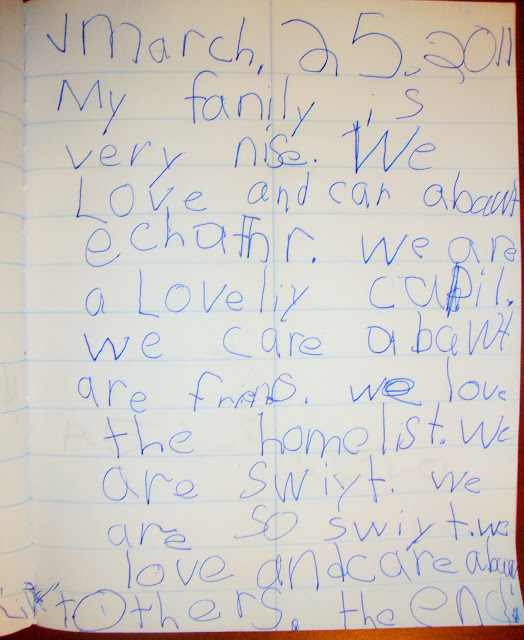 March, 25, 2011
My fanily is
very nise. We
Love and car abawt
echathr. we are
a Loveliy capil.
we care abawt
are frins. we love
the homelist. We
are swiyt. we
are so swiyt. we
love and care abaw
to others. the end.